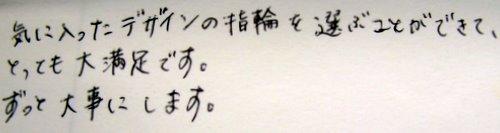 気に入ったデザインの指輪を選ぶことができて、
とっても大満足です。
ずっと大事にします。